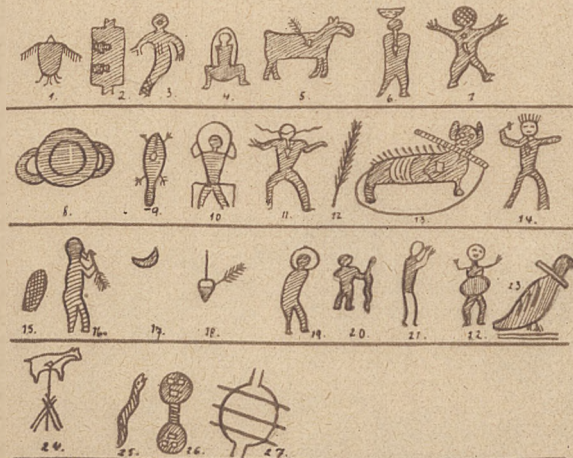 1. 2. 3. 4. 5. 6. 7
8. 9. 10 11. 12 13. 14.
15. 16. 17. 18. 19. 20. 21. 22. 23.
24. 25. 26. 27.